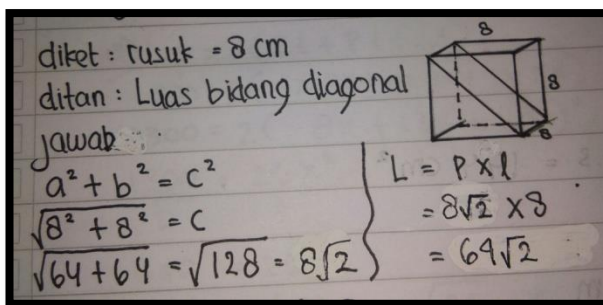 diket : rusuk = 8 cm
ditan : Luas bidang diagonal
jawab :
a² + b² = c²
√8² + 8² = c
√64 + 64 = √128 = 8√2
8
8
8
L = P x l
= 8√2 x 8
= 64√2